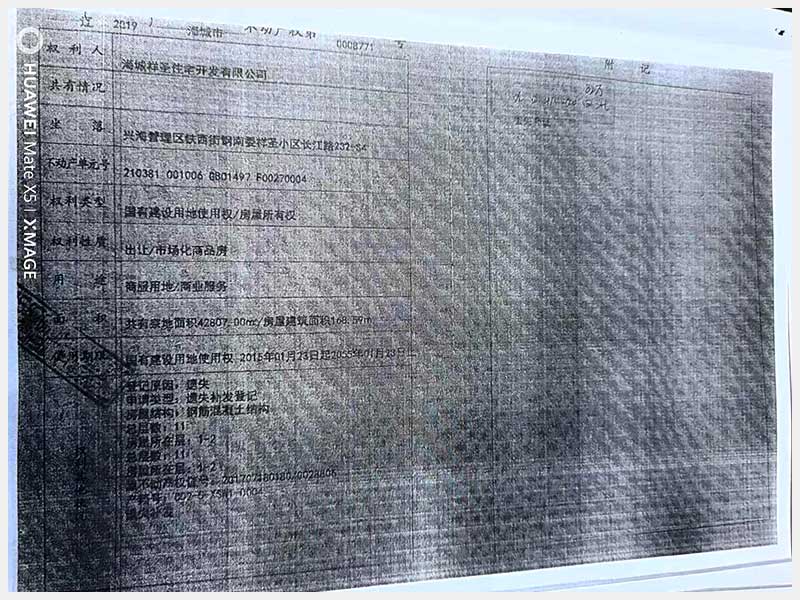 2019 海城市 不动产权第 0008771 号
附 记
权 利 人 海城祥圣住宅开发有限公司
共有情况
坐 落 兴海管理区铁西街钢南委祥圣小区长江路232-S4
不动产单元号 210381 001006 GB01497 F00270004
权利类型 国有建设用地使用权/房屋所有权
权利性质 出让/市场化商品房
用 途 商服用地/商业服务
面 积 共有宗地面积42807.00㎡/房屋建筑面积168.59㎡
使用期限 国有建设用地使用权 2015年01月23日起2055年01月23日
登记原因:遗失
申请类型:遗失补发登记
房屋结构:钢筋混凝土结构
总层数:11
房屋所在层:1-2
总层数:11
房屋所在层:1-2
原不动产权证号:
遗失补发
HUAWEI Mate X5 | XMAGE